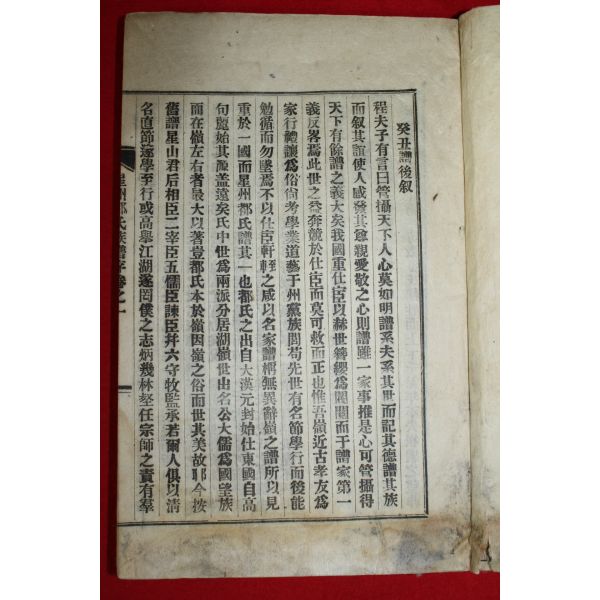 癸丑譜後叙
程夫子有言曰管攝天下人心莫如明譜系夫系其世而記其德譜其族
而叙其誼使人感發其尊親愛敬之心則譜雖一家事推是心可管攝得
天下有餘譜之義大矣我國重仕宦以赫世簪纓爲閥閱而于譜家第一
義反畧焉此世之益奔競於仕宦而莫可救而正也惟吾嶺近古孝友爲
家行禮讓爲俗尙考學業道藝于州黨族閭苟先世有名節學行而後能
勉循而勿墜焉不以仕宦軒輊之咸以名家譜稱無異辭嶺之譜所以見
重於一國而星州都氏譜其一也都氏之出自大漢元封始仕東國自高
句麗始其源盖遠矣氏中世爲兩派分居湖嶺世出名公大儒爲國望族
而在嶺左右者最大以著豈都氏本於嶺因嶺之俗而世其美故耶今按
舊譜星山君后相臣二宰臣五儒臣諫臣幷六守牧監承若爾人俱以淸
名直節邃學至行或高擧江湖遂罔僕之志炳幾林壑任宗師之責有羣
星州都氏族譜序 卷之一